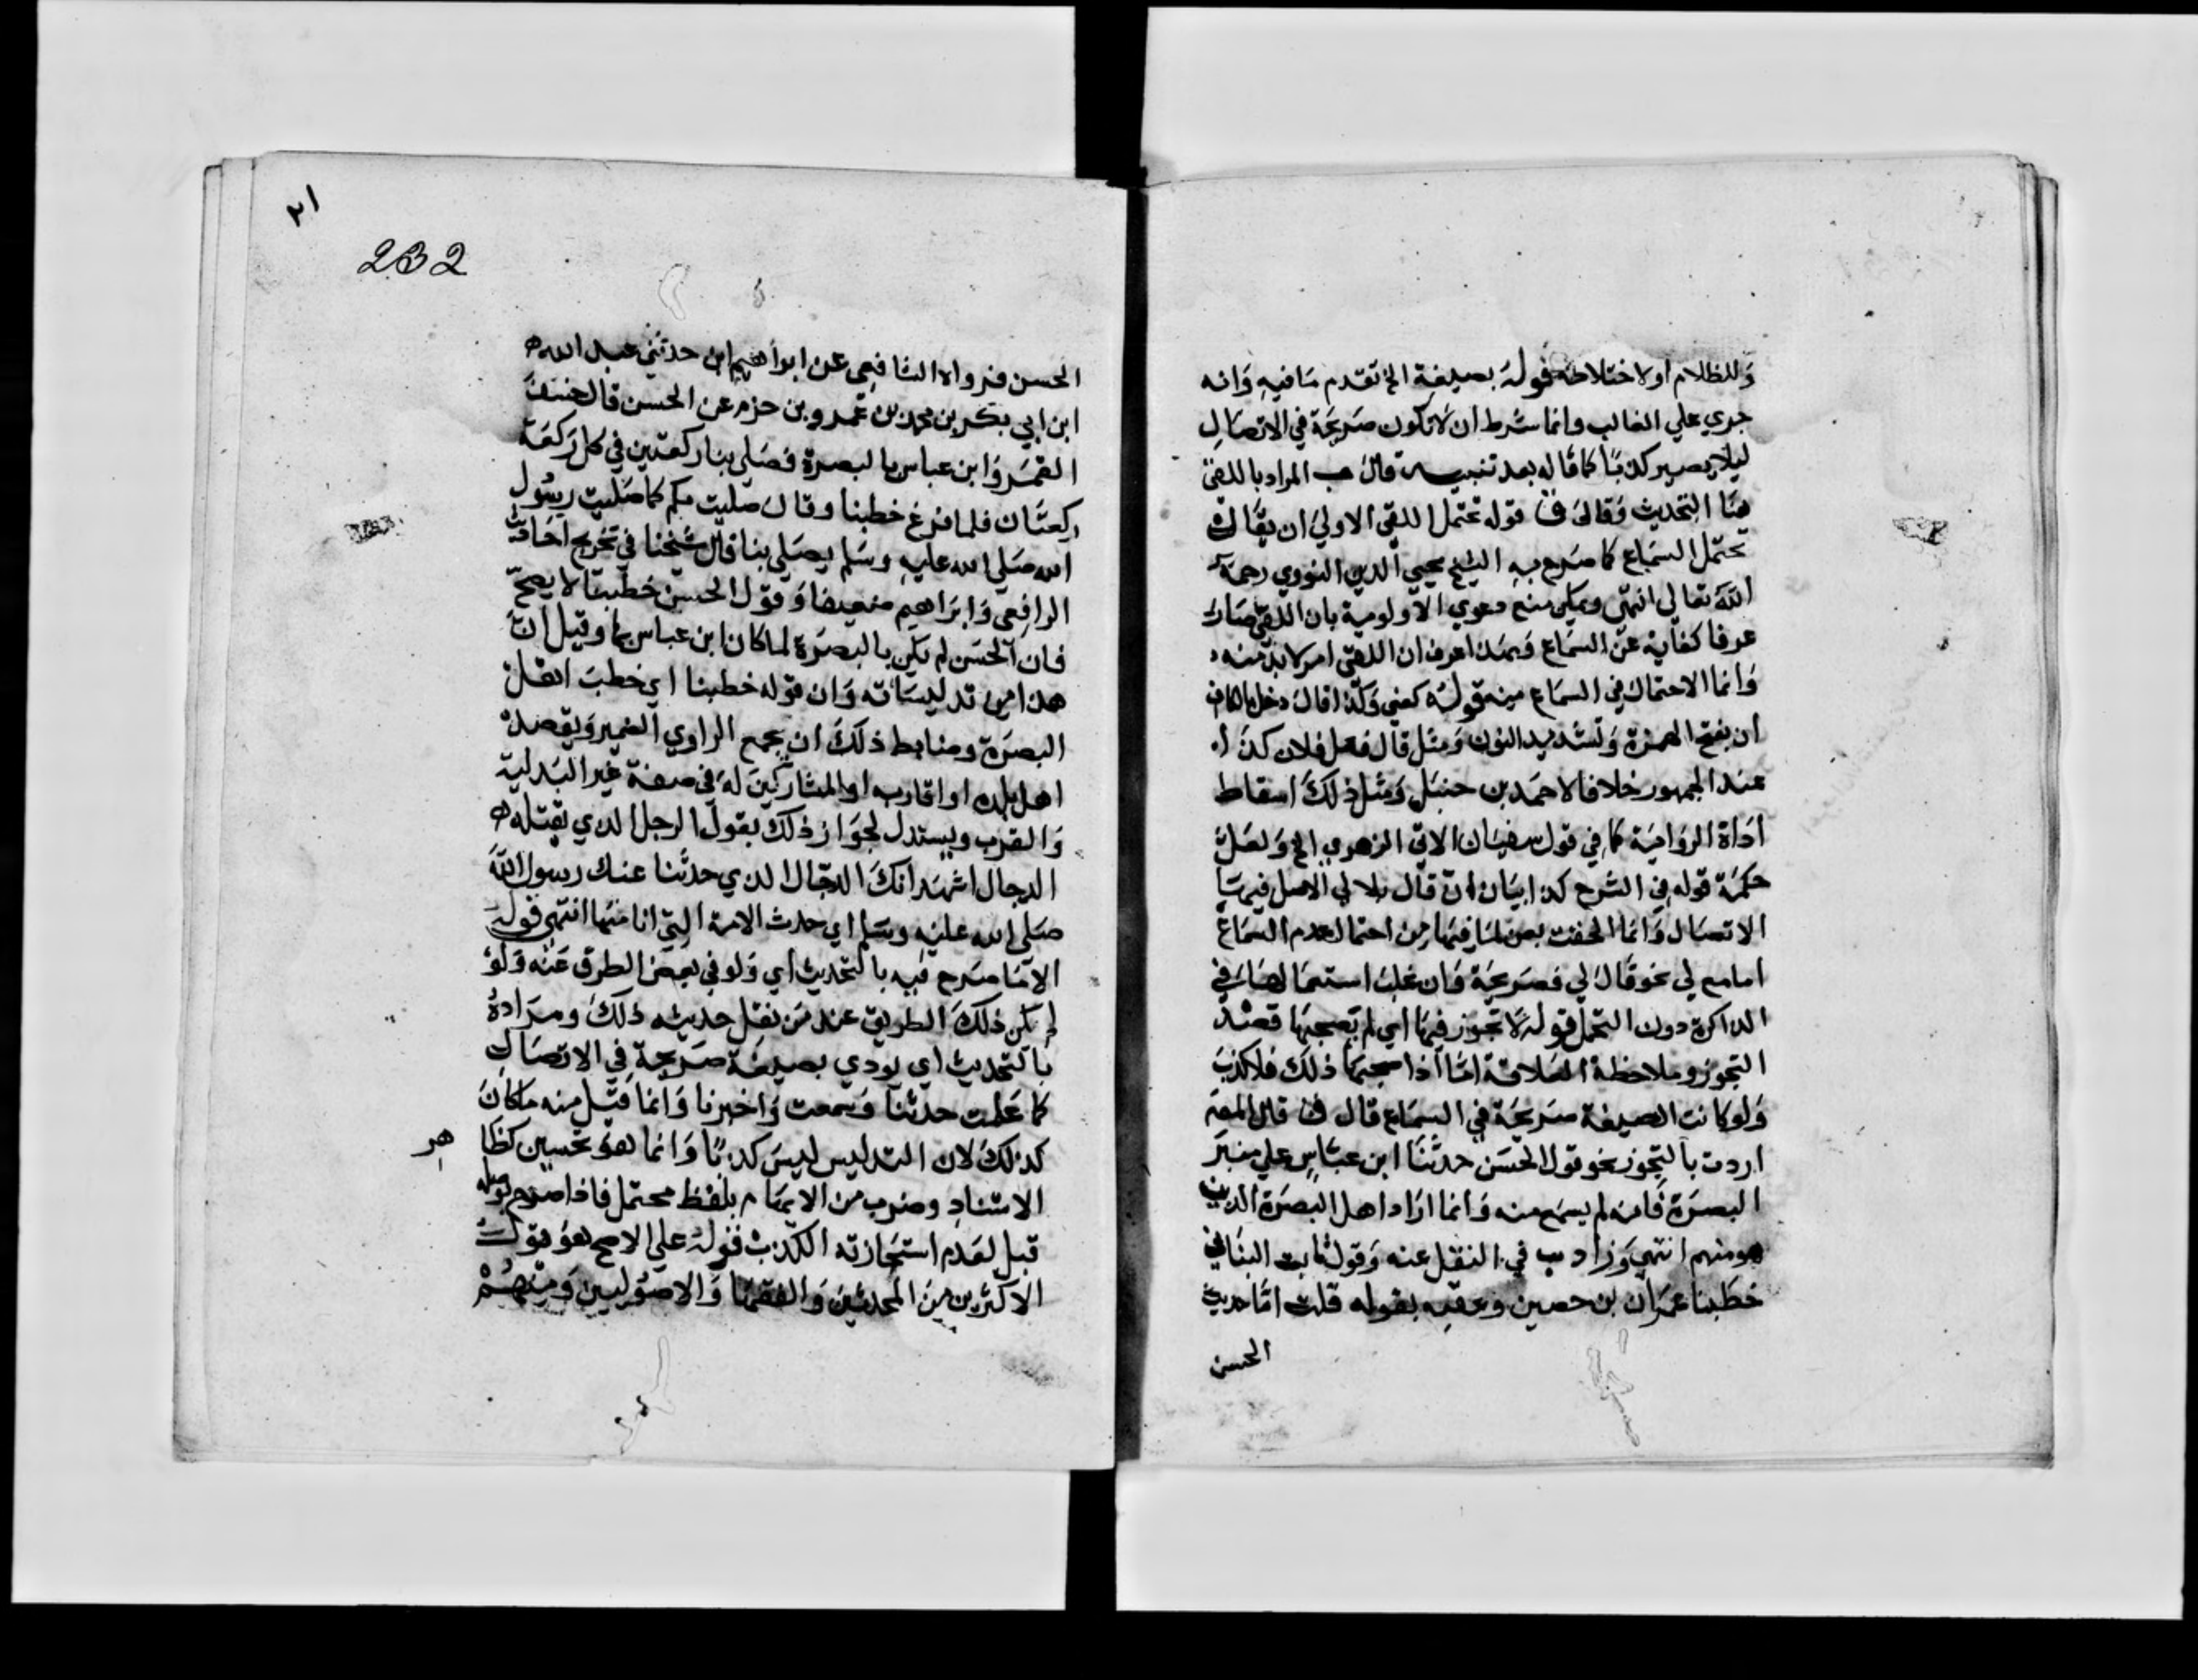 وللظلام او لاختلاطه قوله بصيغة الخ تقدم ما فيه وانه
جري علي الغالب وانما شرط ان لا تكون صريحة في الاتصال
ليلا يصير كذبا كما قاله بعد تنبيه قال ب المراد باللقى
هنا التحديث وقال ق قوله تحتمل اللقى الاولي ان يقال
تحتمل السماع كما صرح به الشيخ محيي الدين النووي رحمه
الله تعالي انتهى ويمكن منع دعوي الاولوية بان اللقى صار
عرفا كناية عن السماع وبهذا عرف ان اللقى امر لا بد منه
وانما الاحتمال في السماع منه قوله كعن وكذا قال دخل بالكاف
ان بفتح الهمزة وتشديد النون ومثل قال فعل فلان كذا
عند الجمهور خلافا لاحمد بن حنبل ومثل ذلك اسقاط
اداة الرواية كما في قول سفيان الاتي الزهري الخ ولعل
حكمة قوله في الشرح كذا بيان ان قال بلا لي الاصل فيها
الاتصال وانما الحقت بعن لما فيها من احتمال عدم السماع
اما مع لي نحو قال لي فصريحة وان غلب استعمالها في
المذاكرة دون التحمل قوله لا تجوز فيها اي لم يصحبها قصد
التجوز وملاحظة العلاقة اما اذا صحبها ذلك فلا كذب
ولو كانت الصيغة صريحة في السماع قال ق قال المص
اردت بالتجوز نحو قول الحسن حدثنا ابن عباس علي منبر
البصرة فانه لم يسمع منه وانما اراد اهل البصرة الذين
هو منهم انتهي وزاد ب في النقل عنه وقول ثابت البناني
خطبنا عمران بن حصين وعقبه بقوله قلت اما حديث
الحسن
٢١
232
الحسن فرواه الشافعي عن ابراهيم ابن حدثني عبد الله
ابن ابي بكر بن محمد بن عمرو بن حزم عن الحسن قال خسف
القمر وابن عباس بالبصرة فصلي بنا ركعتين في كل ركعة
ركعتان فلما فرغ خطبنا وقال صليت بكم كما صليت رسول
الله صلي الله عليه وسلم يصلي بنا قال شيخنا في تخريج احاديث
الرافعي وابراهيم ضعيف وقول الحسن خطبنا لا يصح
فان الحسن لم يكن بالبصرة لما كان ابن عباس بها وقيل ان
هذا من تدليساته وان قوله خطبنا اي خطب اهل
البصرة وضابط ذلك ان يجمع الراوي الضمير ويقصد
اهل بلده او اقاربه او المشاركين له في صفة غير البلدية
والقرب ويستدل لجواز ذلك بقول الرجل الذي يقتله
الدجال اشهد انك الدجال الذي حدثنا عنك رسول الله
صلي الله عليه وسلم اي حدث الامة التي انا منها انتهي قوله
الا ما صرح فيه بالتحديث اي ولو في بعض الطرق عنه ولو
لم تكن ذلك الطريق عند من نقل حديثه ذلك ومراده
بالتحديث اي يودي بصيغة صريحة في الاتصال
كما علمت حدثنا وسمعت واخبرنا وانما قبل منه ما كان
كذلك لان التدليس ليس كذبا وانما هو تحسين كظا هر
الاسناد وضرب من الايهام بلفظ محتمل فاذا صرح بوصله
قبل لعدم استجازته الكذب قوله علي الاصح هو قول
الاكثرين من المحدثين والفقها والاصوليين ومنهم